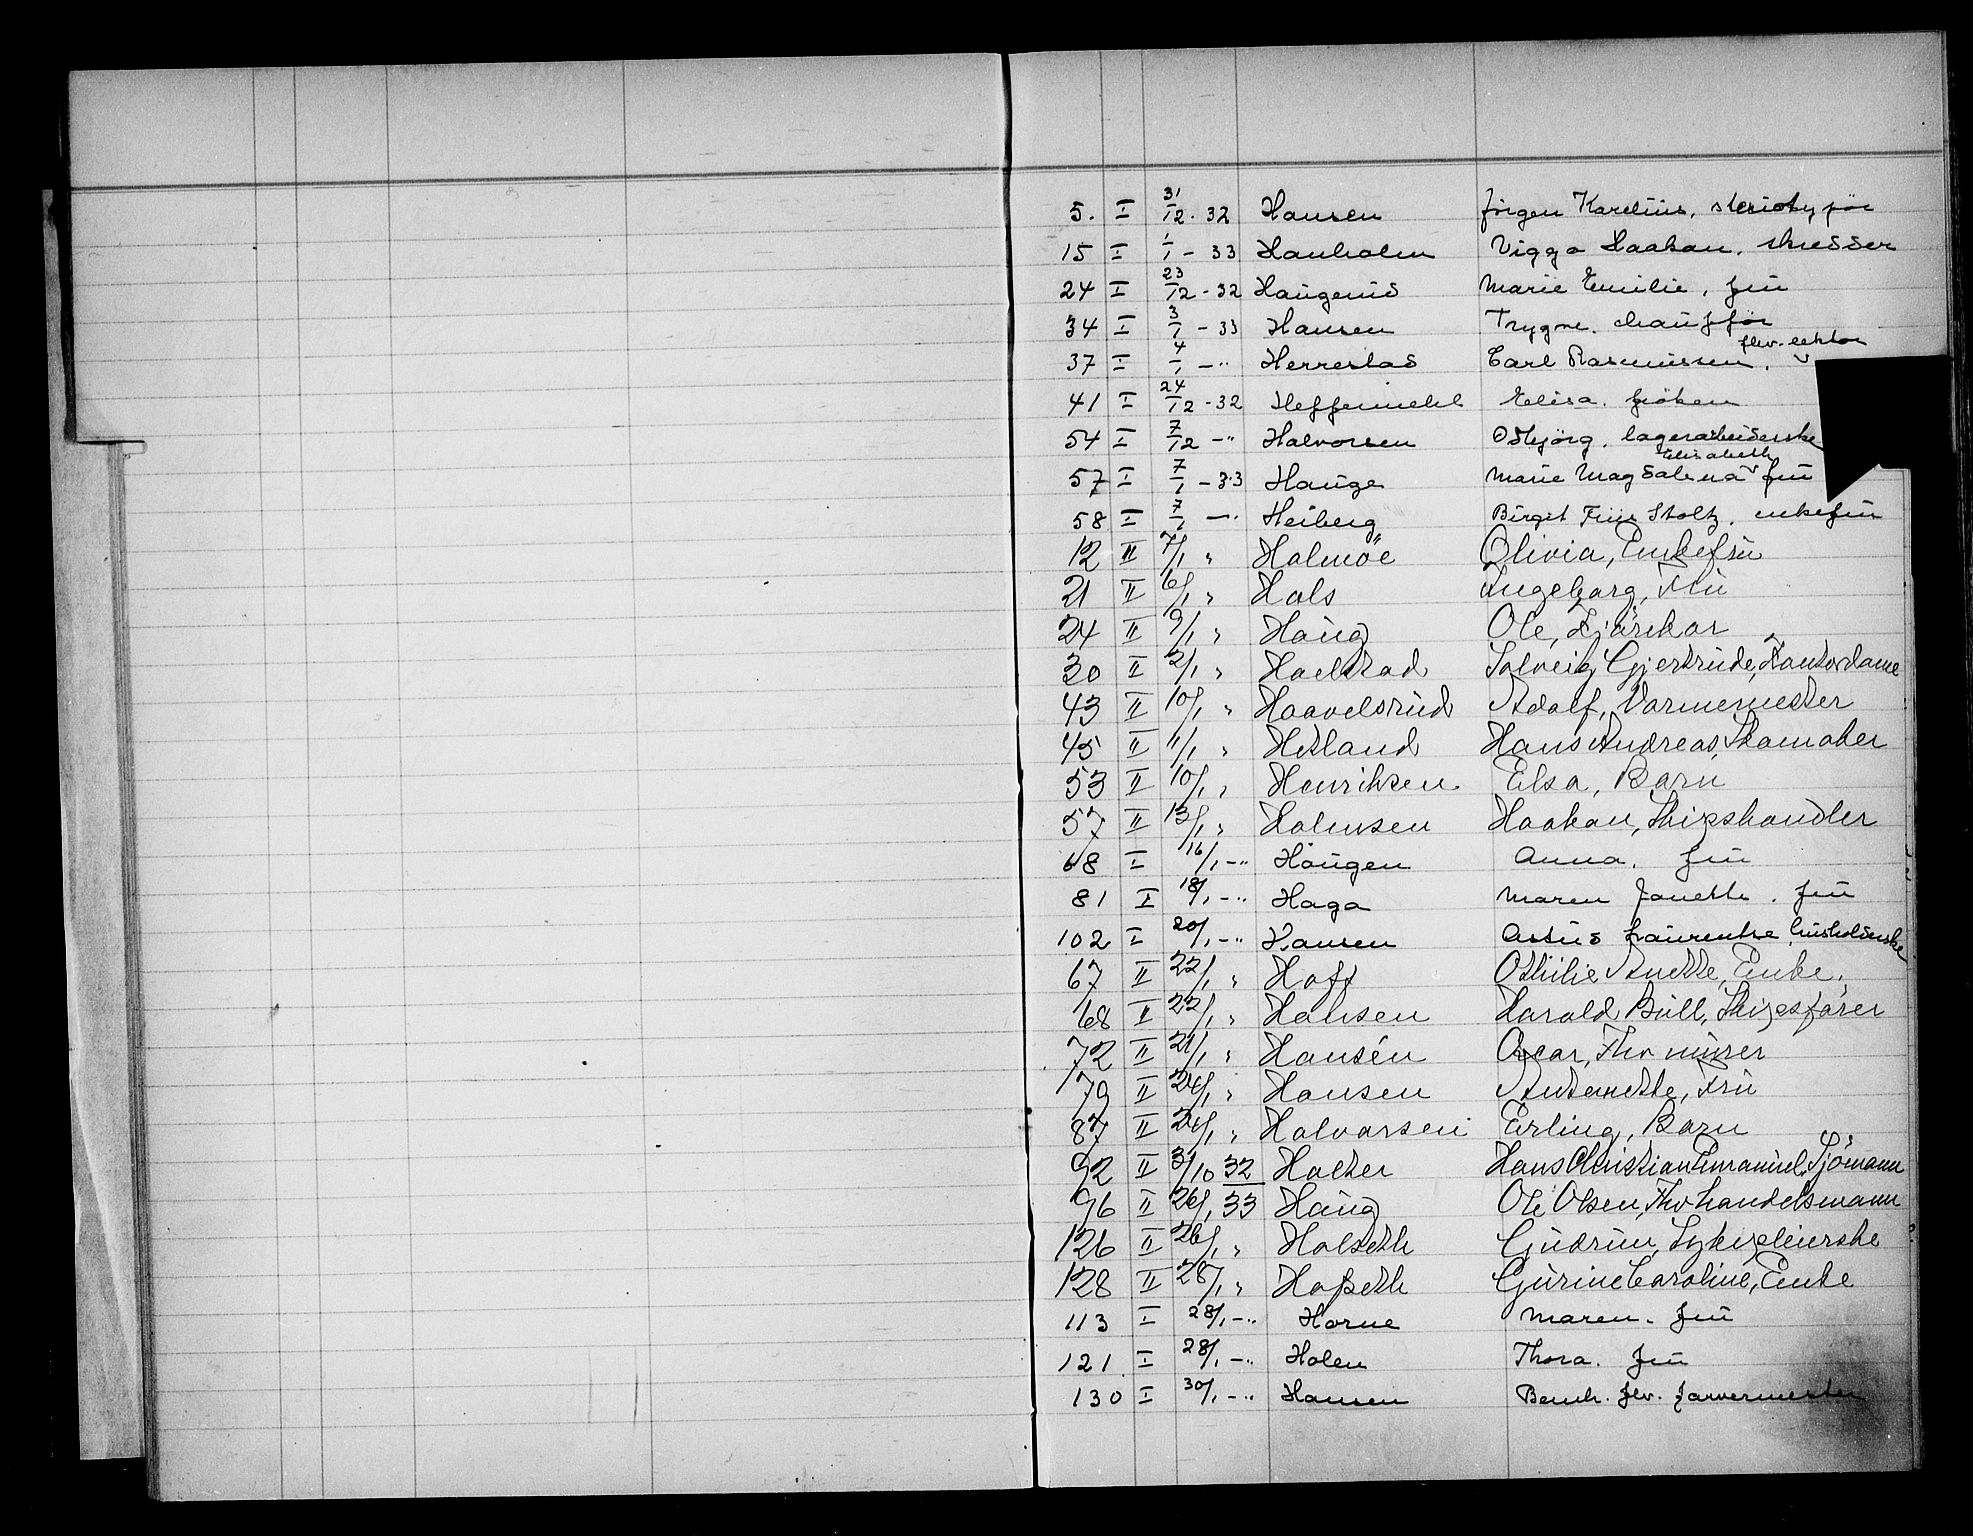 5. I 31/12 - 32 Hansen Jörgen Karelius, steriotypör
15 I 1/1 - 33 Hanholm Viggo Haakon. skredder
24 I 23/12 - 32 Haugerud Marie Emilie, fru
34 I 3/1 - 33 Hansen Trygve. chaufför
37 I 4/1 - " Herrestad Carl Rasmussen. fhv. rektor
41 I 24/12 - 32 Heffermehl Elisa. fröken
54 I 7/12 - " Halvorsen Osbjörg. lagerarbeiderske
57 I 7/1 - 33 Hauge Marie Magdalena Elisabeth fru
58 I 7/1 - " Heiberg Birgit Friis Stoltz. enkefru
12 II 7/1 " Holmöe Olivia, Enkefru
21 II 6/1 " Hals Ingeborg, Fru
24 II 9/1 " Haug Ole, Kjörekar
30 II 2/1 " Haelstad Solveig Gjertrude, Kontordame
43 II 10/1 " Haavelsrud Adolf, Varmemester
45 II 11/1 " Hetland Hans Andreas, Skomaker
53 II 10/1 " Henriksen Elsa, Barn
57 II 13/1 " Holmsen Haakon, Skipshandler
68 I 16/1 - " Haugen Anna. fru
81 I 18/1 - " Haga Maren Janette. fru
102 I 20/1 - " Hansen Astrid Laurentse husholderske
67 II 22/1 " Hoff Othilie Anette, Enke.
68 II 22/1 " Hansen Harald Bull, Skipsförer
72 II 21/1 " Hansen Oscar, Fhv murer
79 II 24/1 " Hansen Antonette, Fru
87 II 24/1 " Halvorsen Erling, Barn
92 II 31/10 32 Holter Hans Christian Emanuel, Sjömann
96 II 26/1 33 Haug Ole Olsen, Fhv handelsmann
126 II 26/1 " Holseth Gudrun, Sykepleierske
128 II 28/1 " Hopseth Gurine Caroline, Enke
113 I 28/1 - " Horne Maren. fru
121 I 28/1 - " Holen Thora. fru
130 I 30/1 - " Hansen Bernh. fhv. farvermester